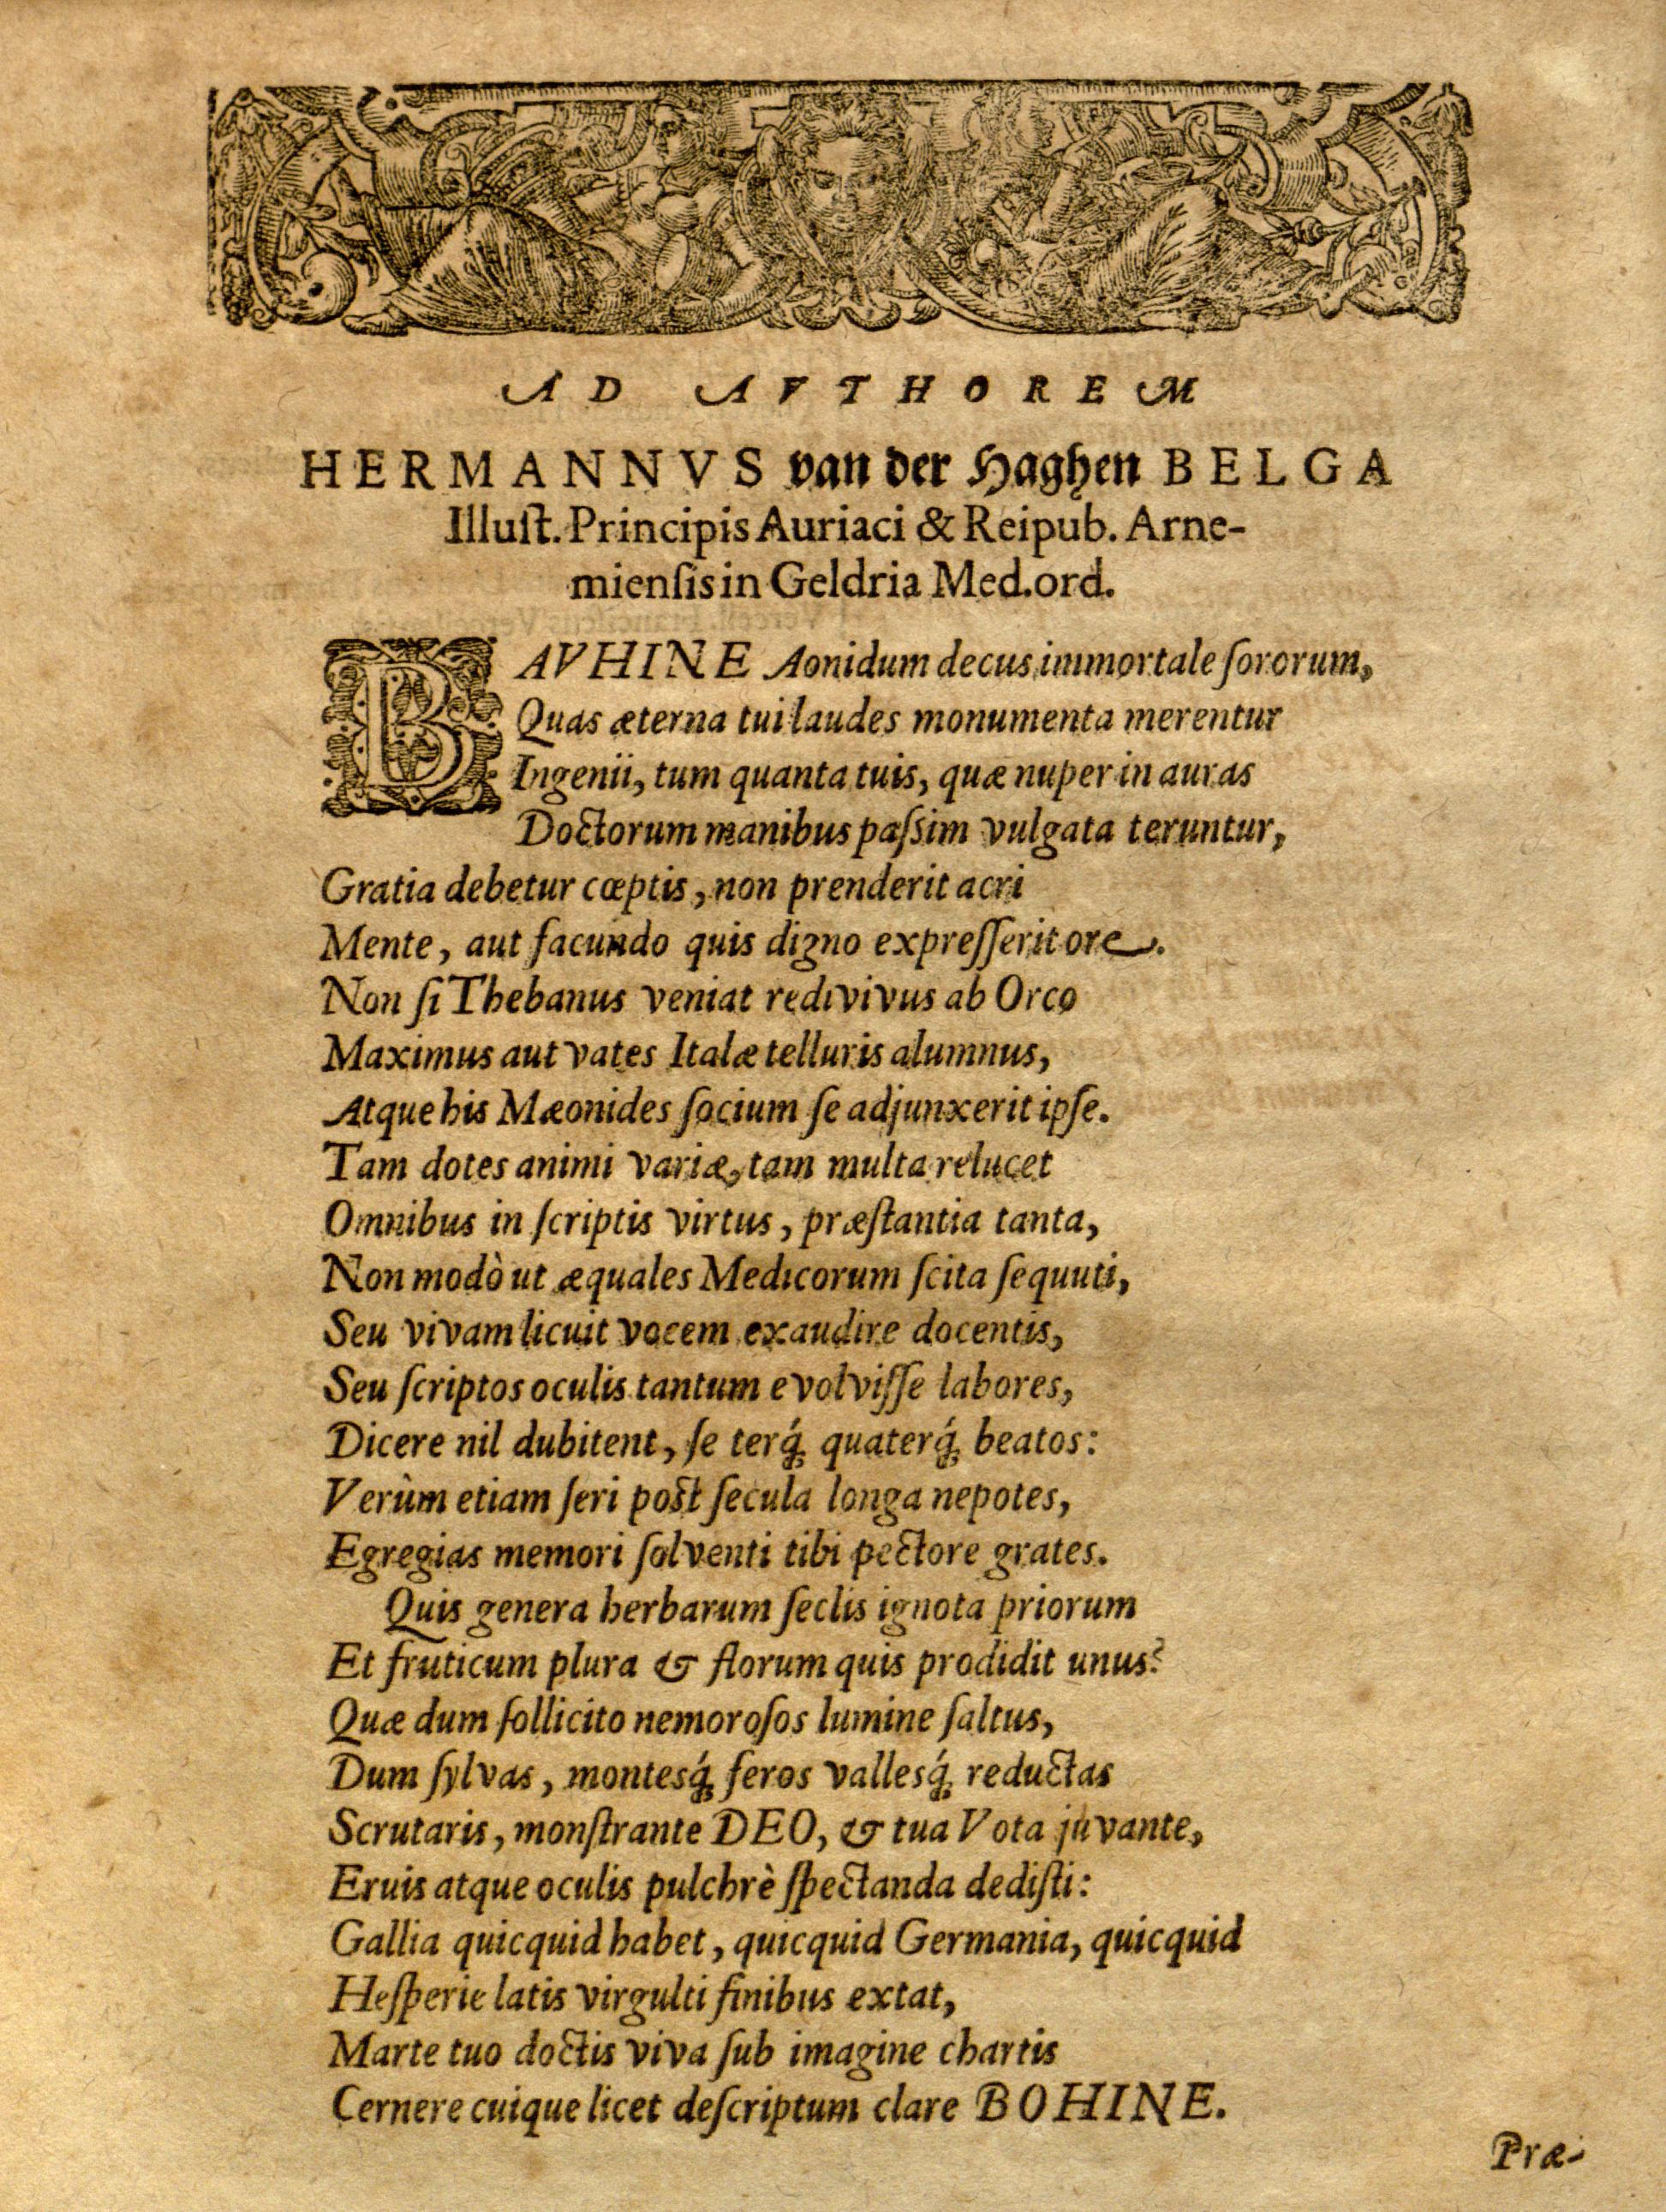 AD AVTHOREM
HERMANNVS van der Haghen BELGA
Illuſt. Principis Auriaci & Reipub. Arne-
mienſis in Geldria Med. ord.
BAVHINE Aonidum decus immortale ſororum,
Quas æterna tui laudes monumenta merentur
Ingenii, tum quanta tuis, quæ nuper in auras
Doctorum manibus paſsim vulgata teruntur,
Gratia debetur cœptis, non prenderit acri
Mente, aut facundo quis digno expreſſerit ore.
Non ſi Thebanus veniat redivivus ab Orco
Maximus aut vates Italæ telluris alumnus,
Atque his Mæonides ſocium ſe adjunxerit ipſe.
Tam dotes animi variæ, tam multa relucet
Omnibus in ſcriptis virtus, præſtantia tanta,
Non modò ut æquales Medicorum ſcita ſequuti,
Seu vivam licuit vocem exaudire docentis,
Seu ſcriptos oculis tantum evolviſſe labores,
Dicere nil dubitent, ſe terq́; quaterq́; beatos:
Verùm etiam ſeri poſt ſecula longa nepotes,
Egregias memori ſolventi tibi pectore grates.
Quis genera herbarum ſeclis ignota priorum
Et fruticum plura & florum quis prodidit unus?
Quæ dum ſollicito nemoroſos lumine ſaltus,
Dum ſylvas, montesq́; feros vallesq́; reductas
Scrutaris, monſtrante DEO, & tua Vota juvante,
Eruis atque oculis pulchrè ſpectanda dediſti:
Gallia quicquid habet, quicquid Germania, quicquid
Heſperie latis virgulti finibus extat,
Marte tuo doctis viva ſub imagine chartis
Cernere cuique licet deſcriptum clare BOHINE.
Præ-